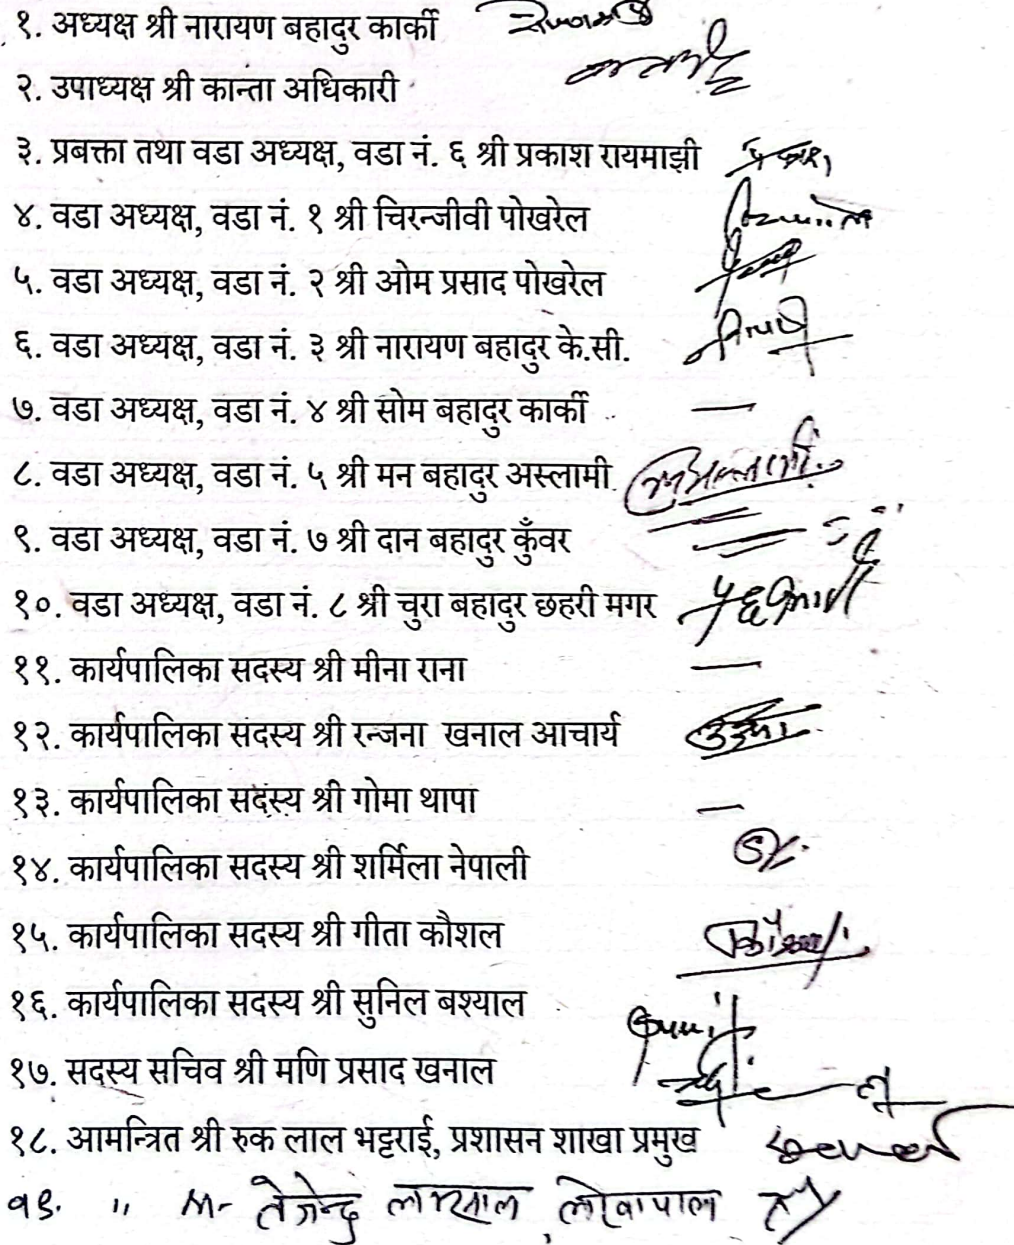 १. अध्यक्ष श्री नारायण बहादुर कार्की
२. उपाध्यक्ष श्री कान्ता अधिकारी
३. प्रबक्ता तथा वडा अध्यक्ष, वडा नं. ६ श्री प्रकाश रायमाझी
४. वडा अध्यक्ष, वडा नं. १ श्री चिरन्जीवी पोखरेल
५. वडा अध्यक्ष, वडा नं. २ श्री ओम प्रसाद पोखरेल
६. वडा अध्यक्ष, वडा नं. ३ श्री नारायण बहादुर के.सी.
७. वडा अध्यक्ष, वडा नं. ४ श्री सोम बहादुर कार्की —
८. वडा अध्यक्ष, वडा नं. ५ श्री मन बहादुर अस्लामी
९. वडा अध्यक्ष, वडा नं. ७ श्री दान बहादुर कुँवर
१०. वडा अध्यक्ष, वडा नं. ८ श्री चुरा बहादुर छहरी मगर
११. कार्यपालिका सदस्य श्री मीना राना —
१२. कार्यपालिका सदस्य श्री रन्जना खनाल आचार्य
१३. कार्यपालिका सदस्य श्री गोमा थापा —
१४. कार्यपालिका सदस्य श्री शर्मिला नेपाली
१५. कार्यपालिका सदस्य श्री गीता कौशल
१६. कार्यपालिका सदस्य श्री सुनिल बश्याल
१७. सदस्य सचिव श्री मणि प्रसाद खनाल
१८. आमन्त्रित श्री रुक लाल भट्टराई, प्रशासन शाखा प्रमुख
१९. " तेजेन्द्र लम्साल